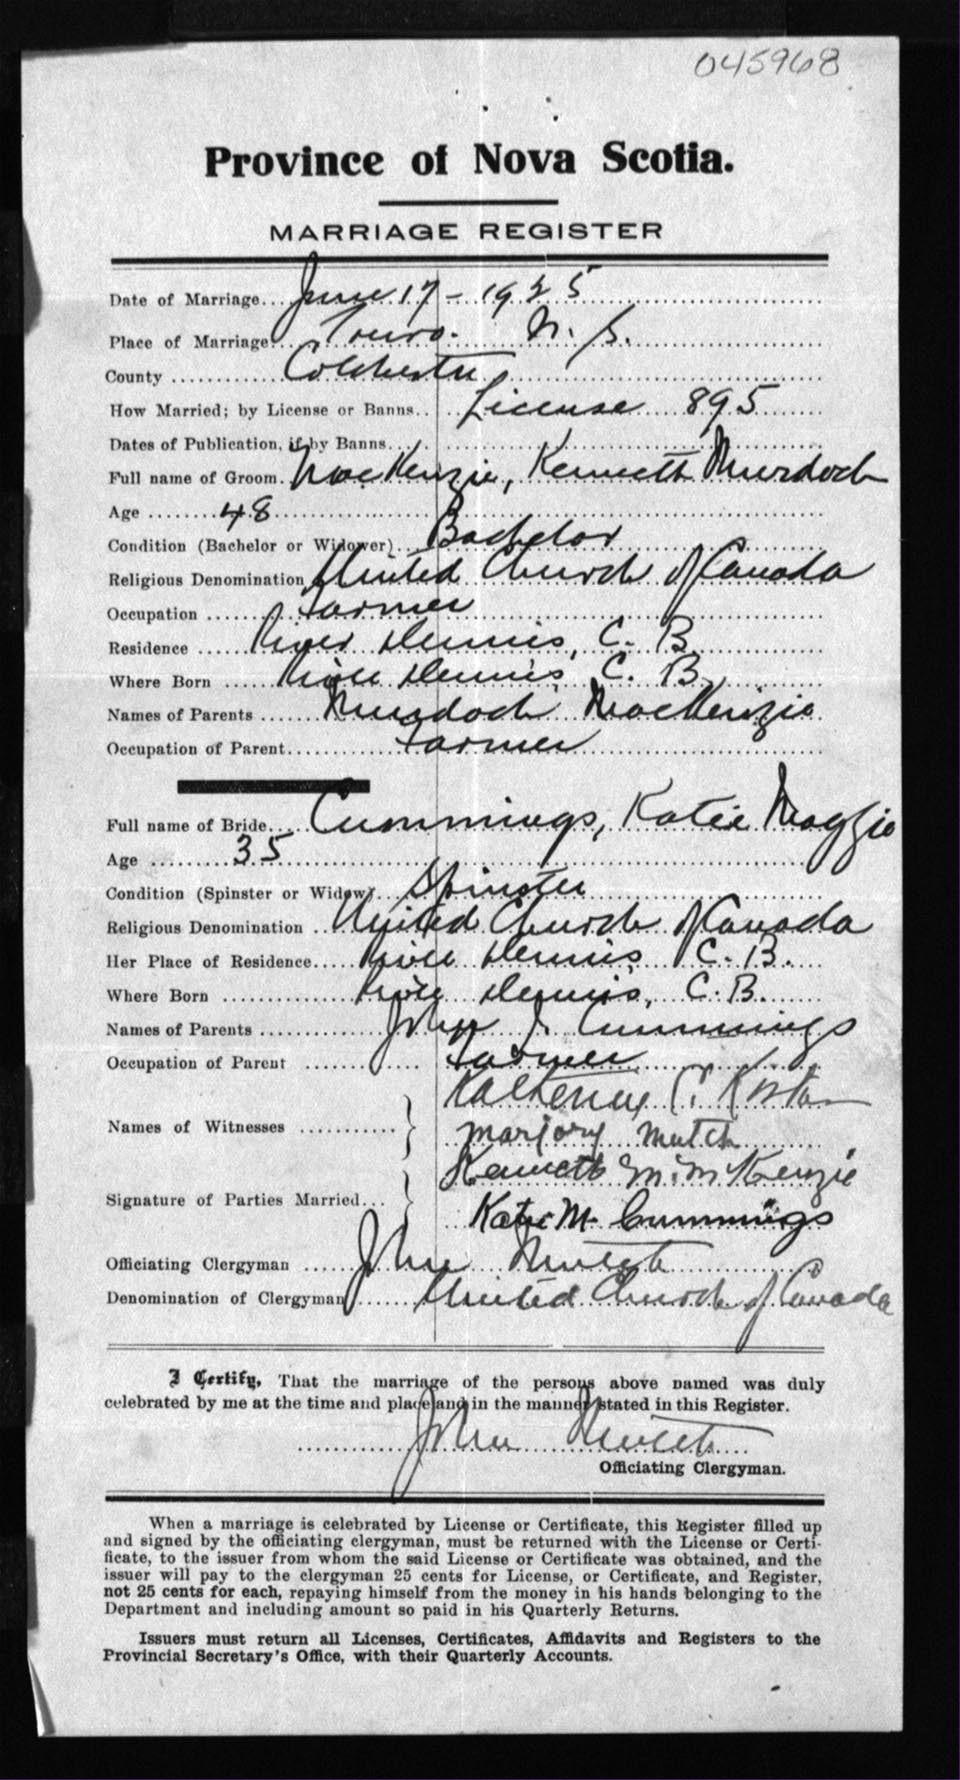 045968
Province of Nova Scotia.
MARRIAGE REGISTER
Date of Marriage... June 17 - 1925
Place of Marriage. Truro. N. S.
County ............ Colchester
How Married; by License or Banns.. License 895
Dates of Publication, if by Banns....
Full name of Groom. MacKenzie, Kenneth Murdoch
Age ........ 48
Condition (Bachelor or Widower).. Bachelor
Religious Denomination United Church of Canada
Occupation ...... Farmer
Residence ..... River Dennis, C. B.
Where Born ..... River Dennis, C. B.
Names of Parents ...... Murdoch MacKenzie
Occupation of Parent....... Farmer
Full name of Bride.... Cummings, Katie Maggie
Age ......... 35
Condition (Spinster or Widow). Spinster
Religious Denomination .. United Church of Canada
Her Place of Residence.... River Dennis, C. B.
Where Born ............ River Dennis, C. B.
Names of Parents .......... John J. Cummings
Occupation of Parent ........ Farmer
Names of Witnesses ........... } Katherine C.
Marjory Mutch
Signature of Parties Married... } Kenneth M. McKenzie
Katie M. Cummings
Officiating Clergyman ..... John Mutch
Denomination of Clergyman ..... United Church of Canada
I Certify, That the marriage of the persons above named was duly
celebrated by me at the time and place and in the manner stated in this Register.
John Mutch
Officiating Clergyman.
When a marriage is celebrated by License or Certificate, this Register filled up
and signed by the officiating clergyman, must be returned with the License or Certi-
ficate, to the issuer from whom the said License or Certificate was obtained, and the
issuer will pay to the clergyman 25 cents for License, or Certificate, and Register,
not 25 cents for each, repaying himself from the money in his hands belonging to the
Department and including amount so paid in his Quarterly Returns.
Issuers must return all Licenses, Certificates, Affidavits and Registers to the
Provincial Secretary's Office, with their Quarterly Accounts.